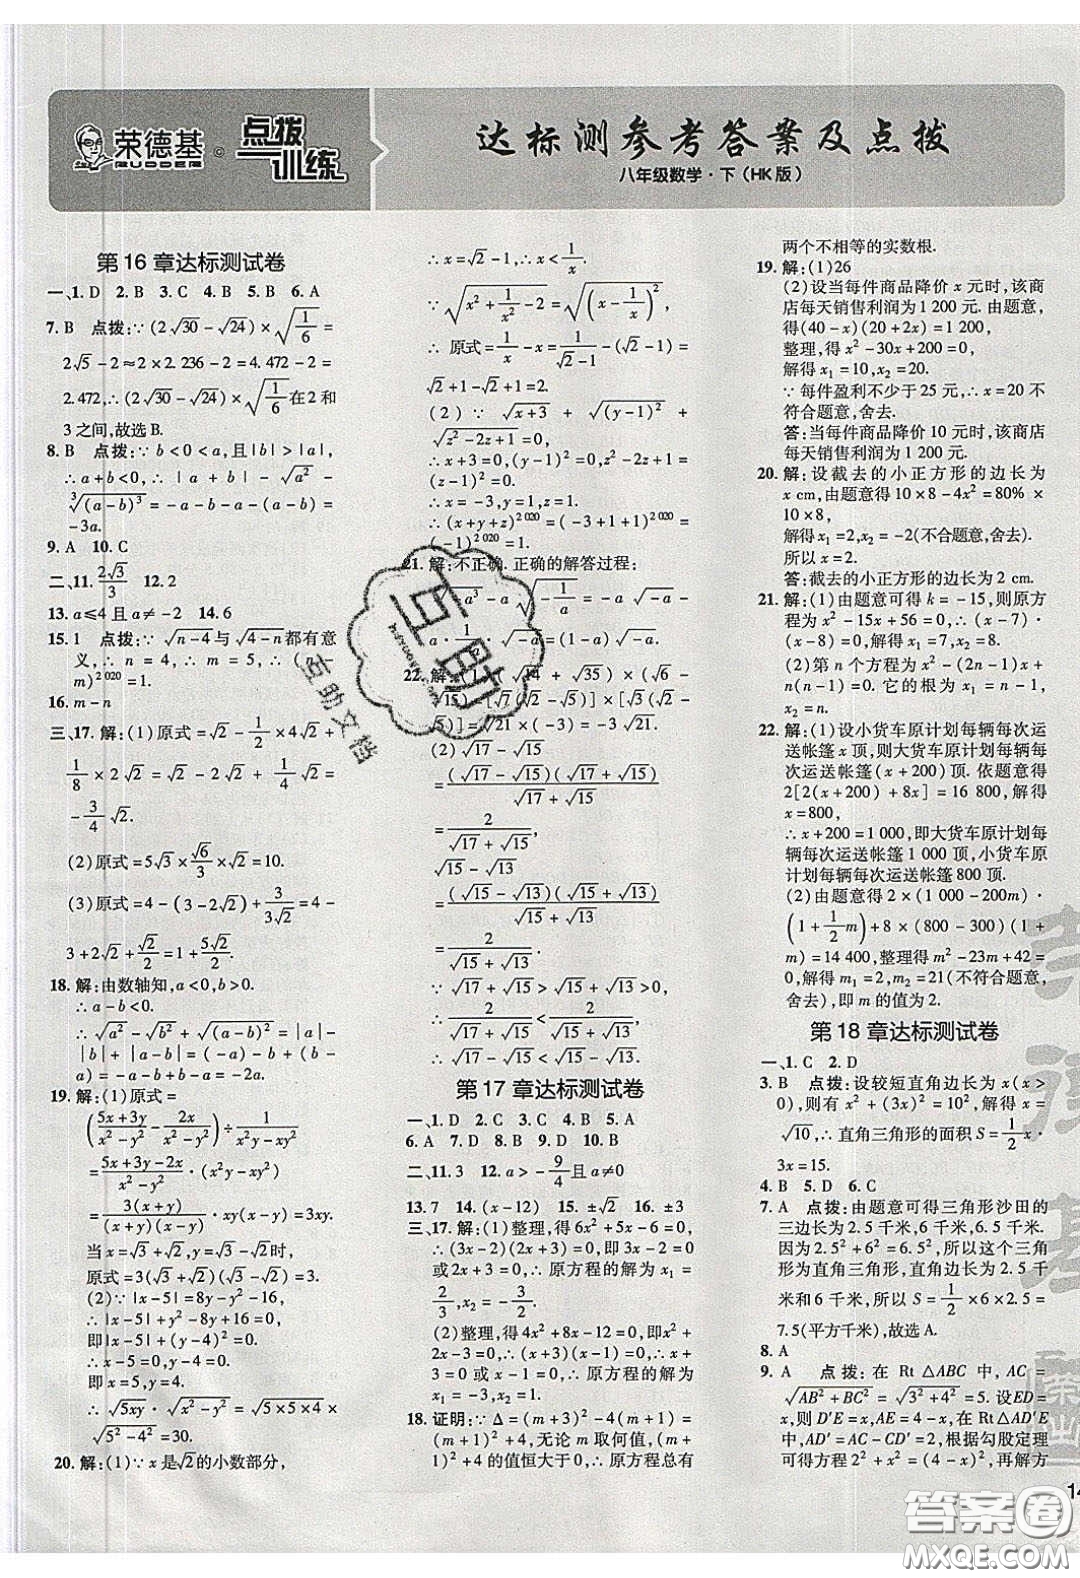 荣德基
RUDDER
©
点拨
训练
达标测参考答案及点拨
八年级数学·下(HK版)
第16章达标测试卷
一、1. D 2. B 3. C 4. B 5. B 6. A
7. B 点拨:∵(2√30-√24)×√(1/6)=
2√5-2≈2×2.236-2=4.472-2=
2.472,∴(2√30-√24)×√(1/6)在2和
3之间,故选B.
8. B 点拨:∵b<0<a,且|b|>|a|,
∴a+b<0,∴|a+b|-√a²-
³√(a-b)³=-a-b-a-(a-b)=
-3a.
9. A 10. C
二、11. 2√3/3 12. 2
13. a≤4且a≠-2 14. 6
15. 1 点拨:∵√(n-4)与√(4-n)都有意
义,∴n=4,∴m=5,∴(
m)²⁰²⁰=1.
16. m-n
三、17. 解:(1)原式=√2-1/2×4√2+
1/8×2√2=√2-2√2+1/4√2=
-3/4√2.
(2)原式=5√3×√6/3×√2=10.
(3)原式=4-(3-2√2)+3/(3√2)=4-
3+2√2+√2/2=1+5√2/2.
18. 解:由数轴知,a<0,b>0.
∴a-b<0.
∴√a²-√b²+√(a-b)²=|a|-
|b|+|a-b|=(-a)-b+(b-
a)=-a-b+b-a=-2a.
19. 解:(1)原式=
((5x+3y)/(x²-y²)-2x/(x²-y²))÷1/(x²y-xy²)
=(5x+3y-2x)/(x²-y²)·(x²y-xy²)
=3(x+y)/((x+y)(x-y))·xy(x-y)=3xy.
当x=√3+√2,y=√3-√2时,
原式=3(√3+√2)(√3-√2)=3.
(2)∵|x-5|=8y-y²-16,
∴|x-5|+y²-8y+16=0,
即|x-5|+(y-4)²=0.
∴x-5=0,y-4=0.
即x=5,y=4.
∴√(5xy)·√(x²-y²)=√(5×5×4)×
√(5²-4²)=30.
20. 解:(1)∵x是√2的小数部分,
∴x=√2-1,∴x<1/x.
∵√(x²+1/x²-2)=√(x-1/x)²,
∴原式=1/x-x=1/(√2-1)-(√2-1)=
√2+1-√2+1=2.
(2)∵√(x+3)+√(y-1)²+
√(z²-2z+1)=0,
∴√(x+3)+|y-1|+√(z-1)²=0.
∴x=-3,y=1,z=1.
∴(x+y+z)²⁰²⁰=(-3+1+1)²⁰²⁰=
(-1)²⁰²⁰=1.
21. 解:不正确.正确的解答过程:
√(-a³)-a√(-1/a)=-a√(-a)-
a·=(1-a)√(-a).
22. 解:(1)(√14+√35)×(√6-
√15)=[√7(√2+√5)]×[√3(√2-
√5)]=√21×(-3)=-3√21.
(2)√17-√15
=(√17-√15)(√17+√15)/(√17+√15)
=2/(√17+√15),
√15-√13
=(√15-√13)(√15+√13)/(√15+√13)
=2/(√15+√13).
∵√17+√15>√15+√13>0,
∴2/(√17+√15)<2/(√15+√13),
∴√17-√15<√15-√13.
第17章达标测试卷
一、1. D 2. C 3. C 4. B 5. A
6. A 7. D 8. B 9. D 10. B
二、11. 3 12. a>-9/4且a≠0
13. 7 14. (x-12) 15. ±√2 16. ±3
三、17. 解:(1)整理,得6x²+5x-6=0,
∴(3x-2)(2x+3)=0,∴3x-2=0
或2x+3=0,∴原方程的解为x₁=
2/3,x₂=-3/2.
(2)整理,得4x²+8x-12=0,即x²+
2x-3=0,∴(x+3)(x-1)=0,∴x+
3=0或x-1=0,∴原方程的解为
x₁=-3,x₂=1.
18. 证明:∵Δ=(m+3)²-4(m+1)=
(m+1)²+4,无论m取何值,(m+
1)²+4的值恒大于0,∴原方程总有
两个不相等的实数根.
19. 解:(1)26
(2)设当每件商品降价x元时,该商
店每天销售利润为1 200元.由题意,
得(40-x)(20+2x)=1 200,
整理,得x²-30x+200=0,
解得x₁=10,x₂=20.
∵每件盈利不少于25元,∴x=20不
符合题意,舍去.
答:当每件商品降价10元时,该商店
每天销售利润为1 200元.
20. 解:设截去的小正方形的边长为
x cm,由题意得10×8-4x²=80%×
10×8,
解得x₁=2,x₂=-2(不合题意,舍去).
所以x=2.
答:截去的小正方形的边长为2 cm.
21. 解:(1)由题意可得k=-15,则原方
程为x²-15x+56=0,∴(x-7)·
(x-8)=0,解得x₁=7,x₂=8.
(2)第n个方程为x²-(2n-1)x+
n(n-1)=0.它的根为x₁=n-1,
x₂=n.
22. 解:(1)设小货车原计划每辆每次运
送帐篷x顶,则大货车原计划每辆每
次运送帐篷(x+200)顶.依题意得
2[2(x+200)+8x]=16 800,解得
x=800,
∴x+200=1 000,即大货车原计划每
辆每次运送帐篷1 000顶,小货车原
计划每辆每次运送帐篷800顶.
(2)由题意,得2×(1 000-200m)·
(1+1/2m)+8×(800-300)(1+
m)=14 400,整理得m²-23m+42=
0,解得m₁=2,m₂=21(不符合题意,
舍去),即m的值为2.
第18章达标测试卷
一、1. C 2. D
3. B 点拨:设较短直角边长为x(x>
0),则有x²+(3x)²=10²,解得x=
√10,∴直角三角形的面积S=1/2x·
3x=15.
4. B 5. D 6. C
7. A 点拨:由题意可得三角形沙田的
三边长为2.5千米,6千米,6.5千米.
因为2.5²+6²=6.5²,所以这个三角
形为直角三角形,所以边长为2.5千
米和6千米,所以S=1/2×6×2.5=
7.5(平方千米),故选A.
8. A
9. A 点拨:在Rt△ABC中,AC=
√(AB²+BC²)=√(3²+4²)=5.设ED=
x,则D′E=x,AE=4-x,在Rt△AD′E
中,AD′=AC-CD′=2,根据勾股定理
可得方程2²+x²=(4-x)²,再解方
14
互助
互助文档
答案圈
MXQE.COM